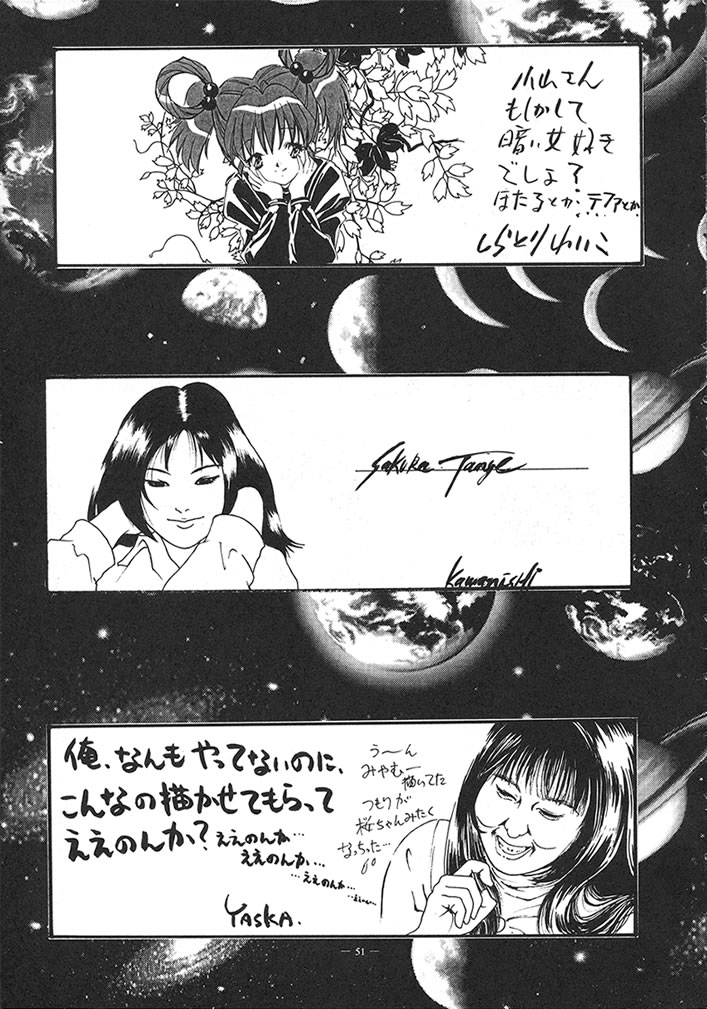 小山さん
もしかして
暗い女好き
でしょ?
ほたるとか、テファとか
しらとりれいこ
Sakura Tange
Kawanishi
俺、なんもやってないのに、
こんなの描かせてもらって
ええのんか?
ええのんか…
ええのんか…
…ええのんか…
YASKA.
う〜ん
みやむー
描いてた
つもりが
桜ちゃんみたく
なっちった…
— 51 —